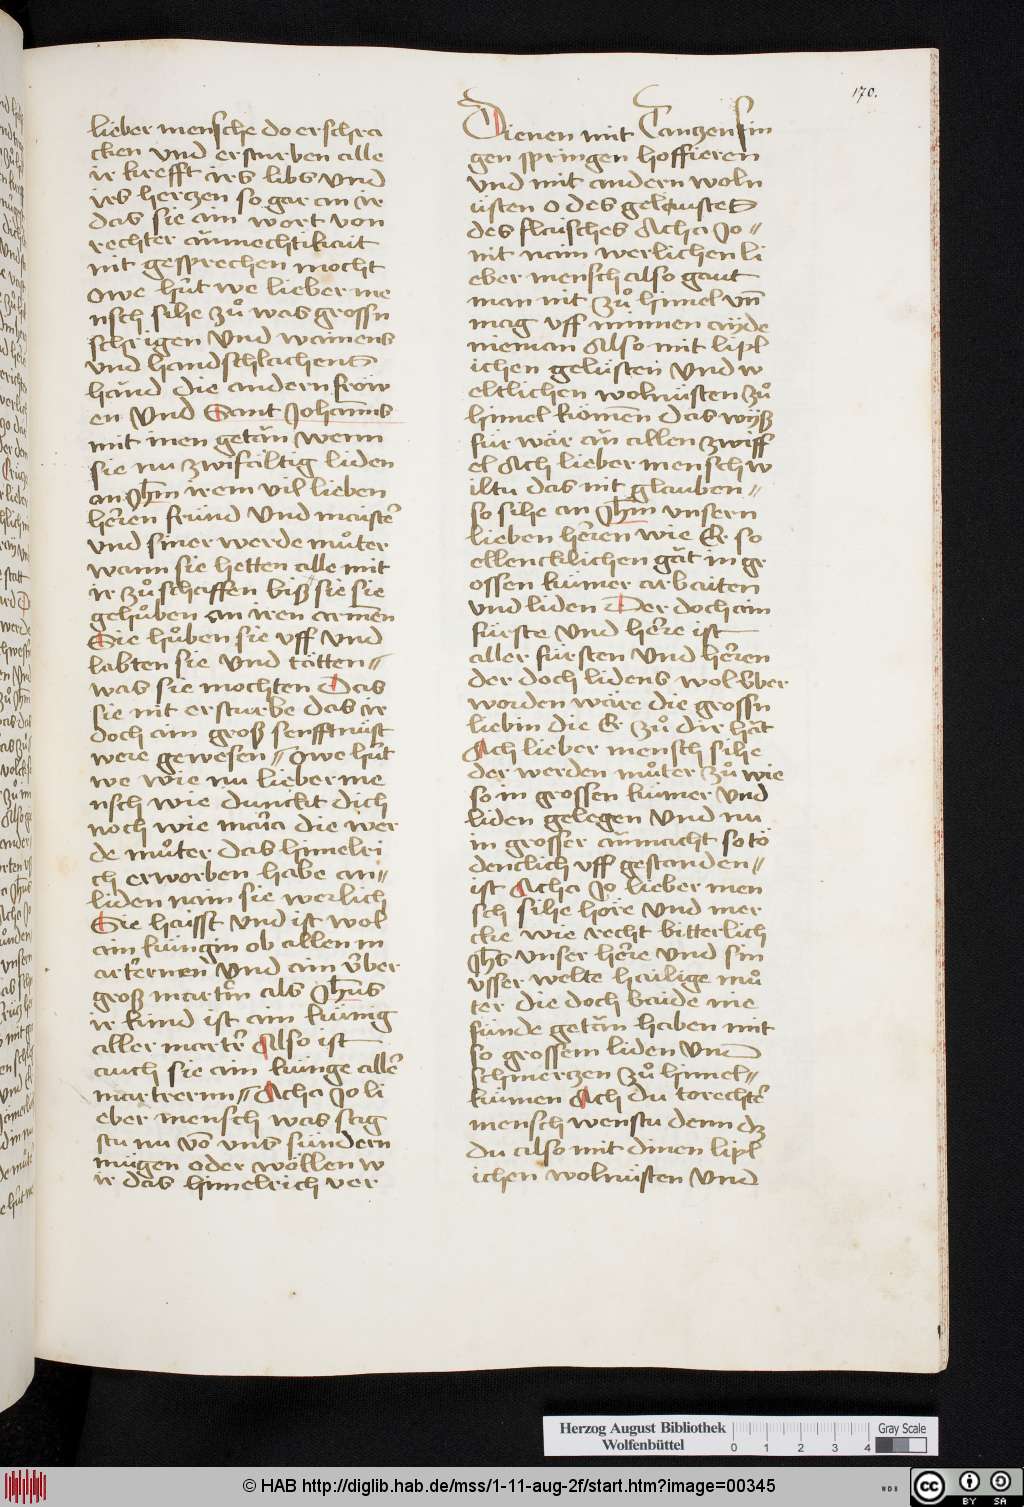 170.
lieber mensche do erschra
cken vnd ersturben alle
ir krefft irs libs vnd
irs herczen so gar an ir
das sie ain wort von
rechter ǎnmechtikait
nit gesprechen mocht
Owe hüt we lieber me
nsch sihe zů was grossn
schrigen vnd wainens
vnd handschlachents
händ die andern frow
en vnd Sant Johan̄ns
mit inen getǎn wenn
sie nu zwifältig liden
an Jhm̄ irem vil lieben
herren fründ vnd maister
vnd siner werde můter
wann sie hetten alle mit
ir zů schaffen biß sie sie
gehůben an iren armen
Sie hůben sie vff vnd
labten sie vnd tätten //
was sie mochten Das
sie nit ersturbe das ir
doch ain groß senfftnüst
were gewesen // Owe hüt
we wie nu lieber me
nsch wie dunckt dich
noch wie maria die wer
de můter das himelri
ch erworben habe an //
liden nain sie werlich
Sie haisst vnd ist wol
ain küngin ob allen m
arterern vnd ain v̈ber
groß martrin als Jhūs
ir kind ist ain künig
aller martrer Also ist
auch sie ain künge aller
martrerinn // Acha Jo li
eber mensch was sag
stu nu vō vns sündern
mügen oder wöllen w
ir das himelrich ver
Dienen mit Tanczen sin
gen springen hoffieren
vnd mit andern woln
üsten O des gelaustes
des flaisches Acha Jo //
nit nain werlichen li
eber mensch also gaut
man nit zů himel vn̄
mag vff minnen ayde
nieman Also mit lipl
ichen gelüsten vnd w
eltlichen wolnüsten zů
himel komen das wÿß
für wär ǎn allen zwiff
el Ach lieber mensch w
iltu das nit glauben //
so sihe an Jhm̄ vnsern
lieben herren wie Er so
ellencklichen gǎt in gr
ossen kümer arbaiten
vnd liden Der doch ain
fürste vnd herre ist
aller fürsten vnd herren
der doch lidens wol v̈ber
worden wäre die grossn
liebin die Er zů dir hǎt
Ach lieber mensch sihe
der werden můter zů wie
so in grossen kümer vnd
liden gelegen vnd nu
in grosser ǎnmacht so tö
denclich vff gestanden //
ist Acha Jo lieber men
sch sihe höre vnd mer
cke wie recht bitterlich
Jhs̄ vnser herre vnd sin
vsser welte hailige mů
ter die doch baide nie
sünde getǎn haben mit
so grossem liden vnd
schmerczen zů himel //
kumen Ach du torechter
mensch wenstu denn dz
du also mit dinen lipl
ichen wolnüsten vnd
Herzog August Bibliothek
Wolfenbüttel
0 1 2 3 4
Gray Scale
© HAB http://diglib.hab.de/mss/1-11-aug-2f/start.htm?image=00345
WDB
cc BY SA